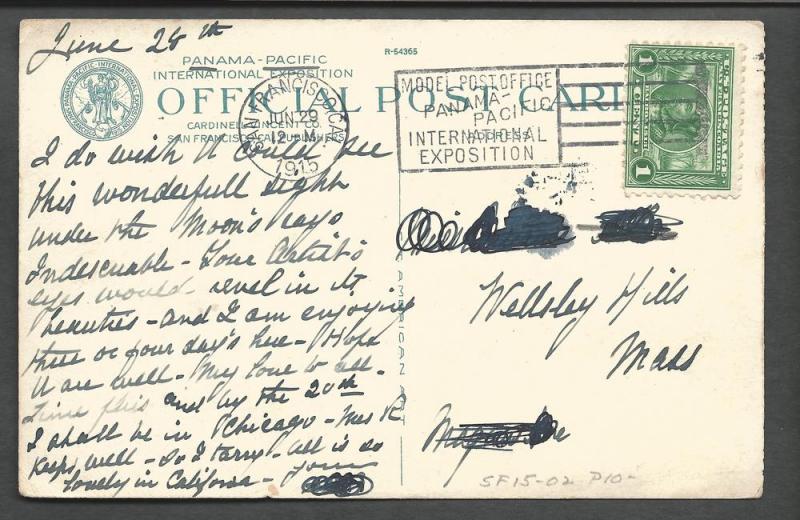 June 28th
PANAMA-PACIFIC
INTERNATIONAL EXPOSITION
R-54365
OFFICIAL POST CARD
CARDINELL-VINCENT CO.
SAN FRANCISCO, CAL., PUBLISHERS
SAN FRANCISCO CAL.
JUN 29
12 - M
1915
MODEL POST OFFICE
PANAMA-
PACIFIC
INTERNATIONAL
EXPOSITION
1 CENT 1
I do wish U could see
this wonderfull sight
under the Moon's rays
Indescribable - Your Artist's
eyes would revel in its
beauties - and I am enjoying
three or four day's here - Hope
U are well - My love to all -
Time flies and by the 20th
I shall be in Chicago - Mrs R
Keeps well - So I tarry - all is so
lovely in California - yours
AMERICAN ART
Wellsley Hills
Mass
SF15-02 P10-